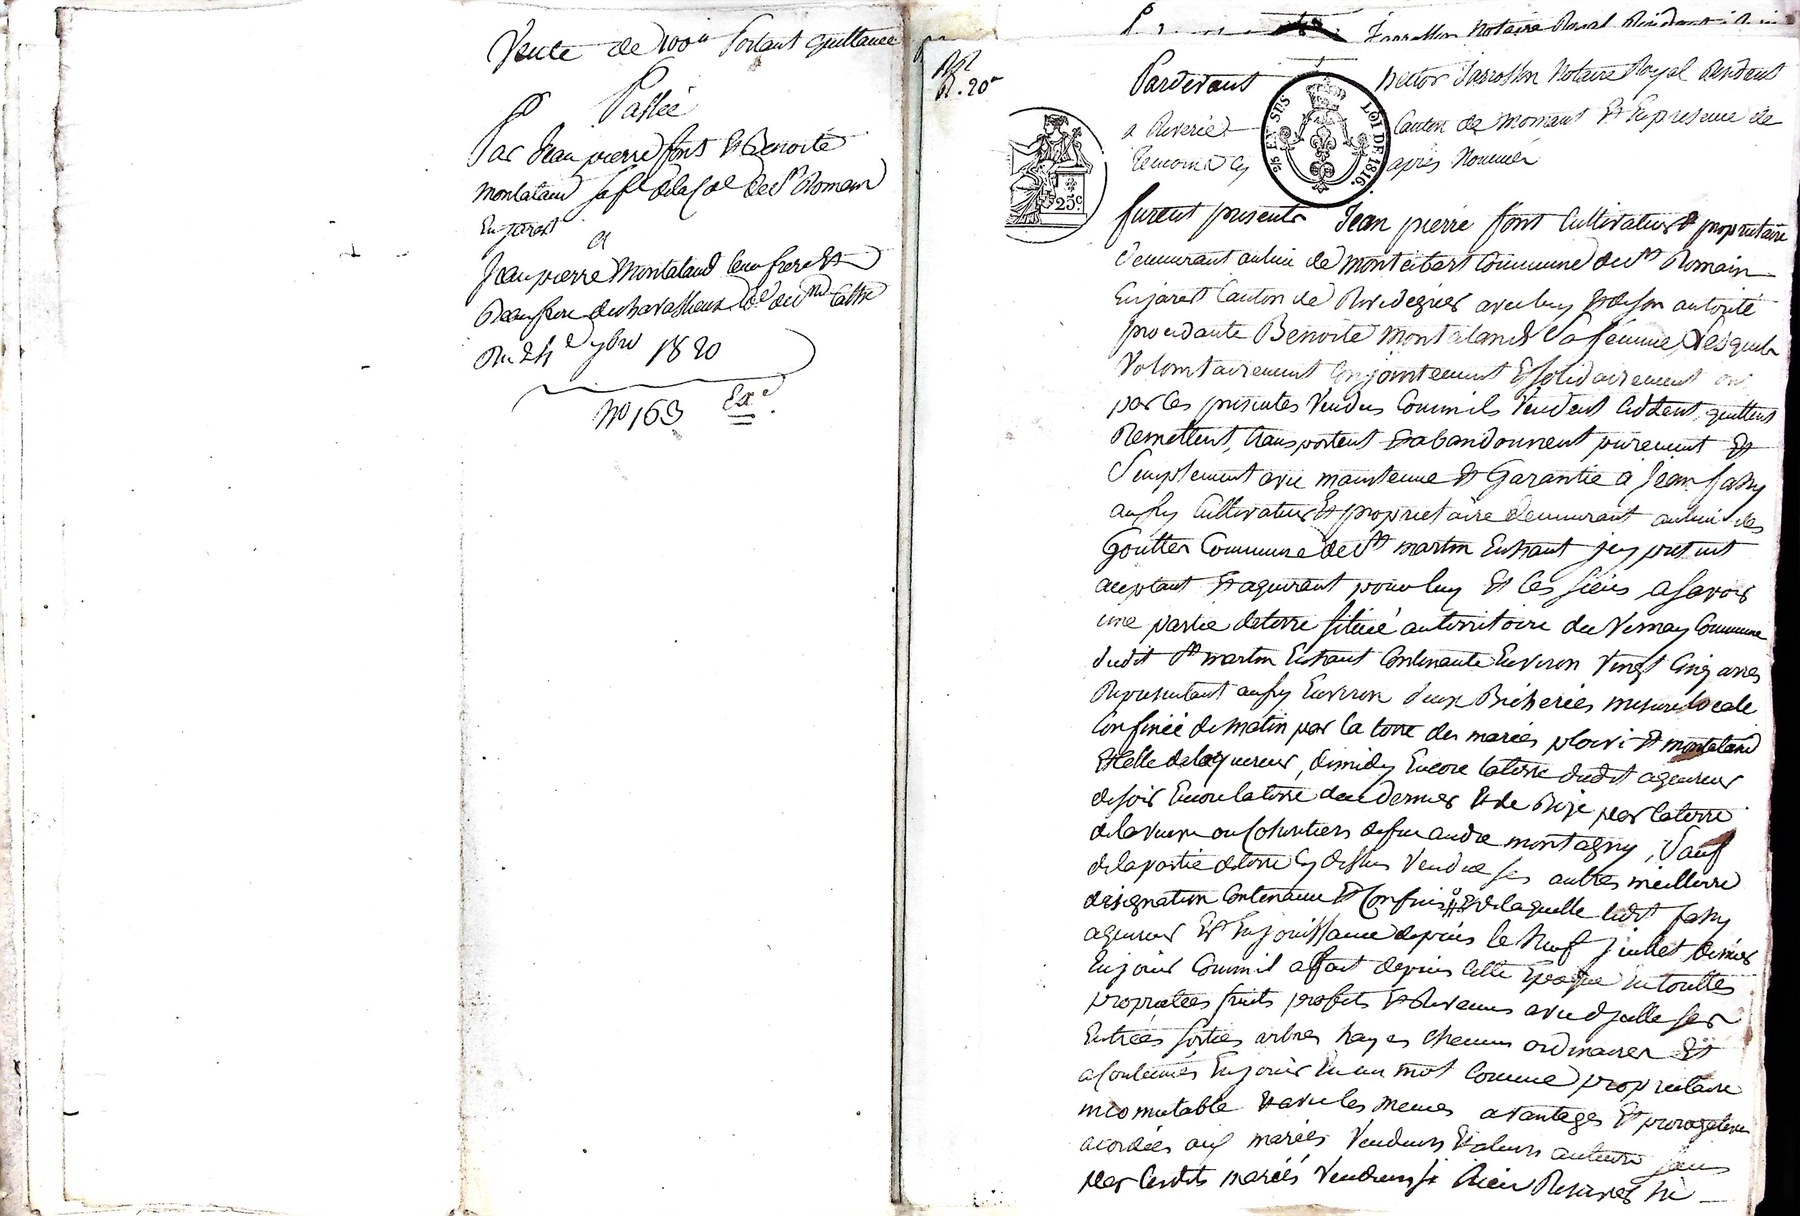 Vente de 100ᵘ portant quittance
Passée
Par Jean pierre font et Benoite
montaland sa fᵉ de la Cᵉ de Sᵗ Romain
En jarest
a
Jean pierre Montaland leur frere et
Beaufrere de
Du 24ᵉ 9bre 1820
Nº 163 Exᵉ
R. 20
Pardevant hector Jarosson Notaire Royal Résident
a Riverie Canton de mornant Et En presence de
temoins cy après Nommés
2/8 EN SUS LOI DE 1816.
25c.
furent presents Jean pierre font Cultivateur & proprietaire
demeurant au lieu de montcibert Commune de Sᵗ Romain
En jarest Canton de Rivedegier avec luy & de son autorité
procedante Benoite Montaland Sa femme, Lesquels
Volontairement Conjointement & solidairement ont
par Ces presentes Vendu Comm'ils Vendent Cédent, quittent
Remettent, transportent & abandonnent purement Et
Simplement avec maintenue & Garantie a Jean fahy
aussy Cultivateur & proprietaire demeurant au lieu des
Gouttes Commune de Sᵗ martin En haut jcy present
aceptant & aquerant pour luy Et les siens a Savoir
une partie de terre Située au territoire du Vernay Commune
dudit Sᵗ martin En haut Contenante Environ Vingt Cinq ares
Representant aussy Environ deux Bicherées mesure locale
Confinée de matin par la terre des mariés ploivi & montaland
& celle de laquereur, de midy Encore la terre dudit aquereur
de soir Encore la terre de ce dernier & de Bize par la terre
de la Veuve ou Cohéritiers de feu andré montagny, Sauf
de la partie de terre cy dessus Vendue ses autres meilleure
désignation Contenance & Confins, & de laquelle ledit fahy
aquereur Est En jouissance depuis le Neuf juillet dernier
En jouir Comm'il a fait depuis Cette Epoque En touttes
proprietées fruits profits & Revenus avec d'jcelle ses
Entrées sorties arbres hayes chemins ordinaires Et
acoutumés, En jouir En un mot Comme proprietaire
incomutable & avec les memes avantages & prérogatives
acordées aux mariés Vendeurs & a leurs auteurs sans
par lesdits mariés Vendeurs si Rien Reserver ni